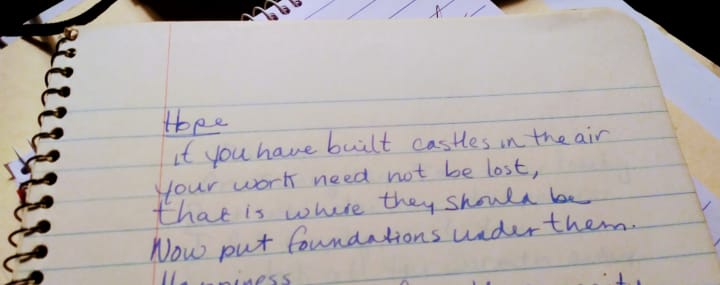 Hope
if you have built castles in the air
your work need not be lost,
that is where they should be
Now put foundations under them.
Happiness